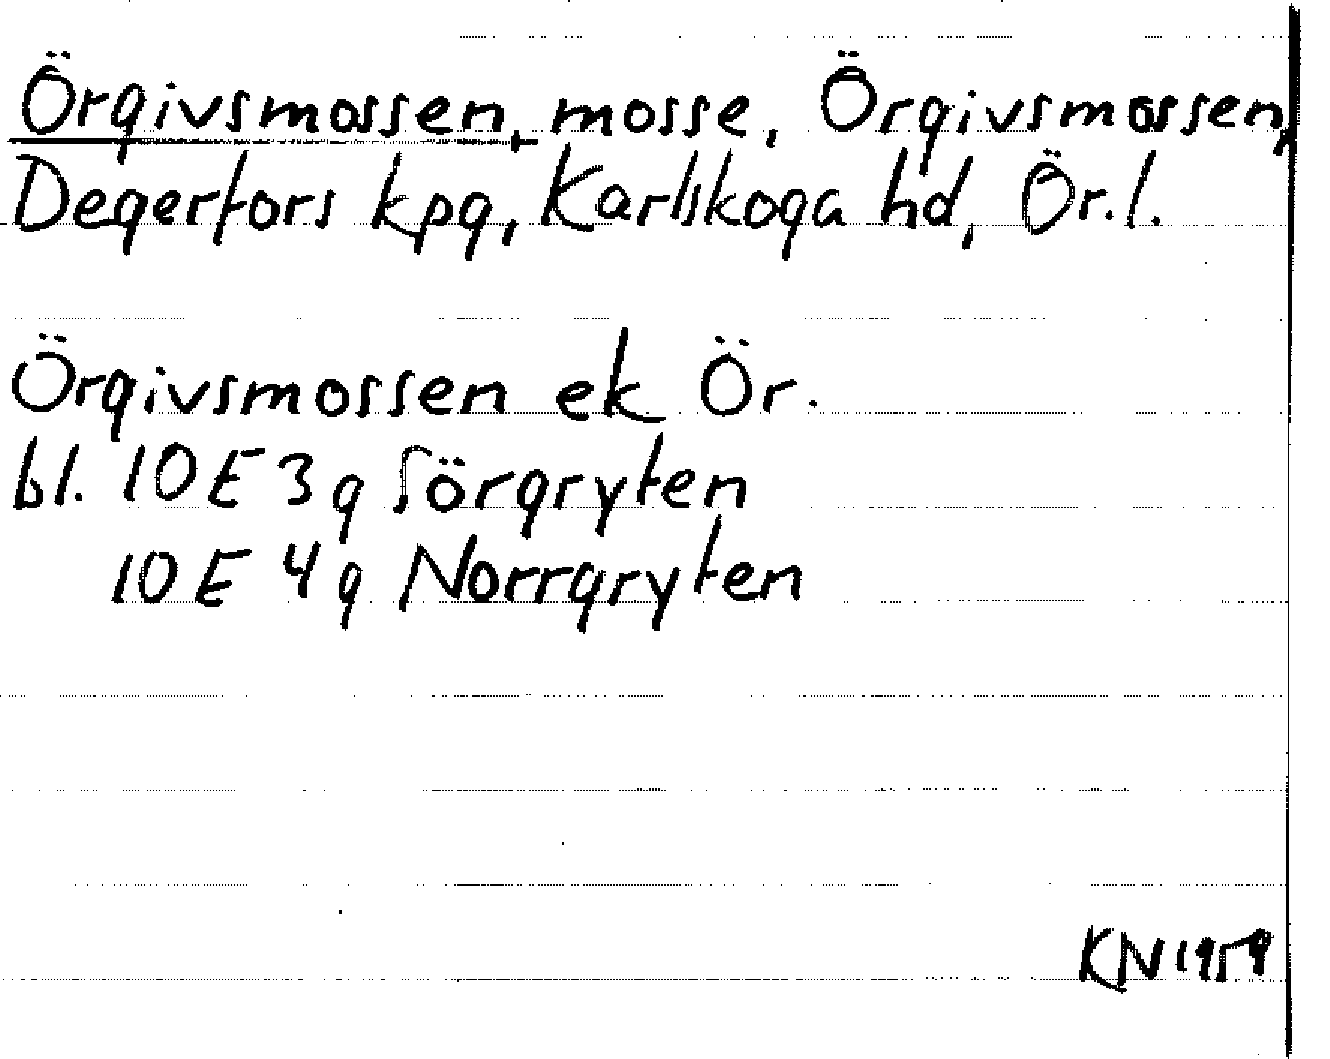 Örgivsmossen, mosse, Örgivsmossen,
Degerfors kpg, Karlskoga hd, Ör.l.
Örgivsmossen ek Ör.
bl. 10 E 3 g Sörgryten
10 E 4 g Norrgryten
KN 1959